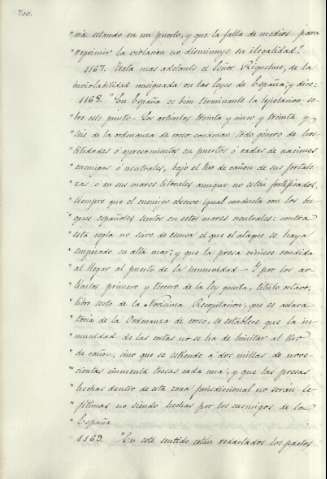 "nia estando en un puerto, y que la falta de medios para
"reprimir la violacion no disminuye su ilegalidad."
1167. Trata mas adelante el Señor Riquelme, de la
inviolabilidad consignada en las leyes de España, y dice:
1168. "En España es bien terminante la legislacion so-
"bre este punto. Los articulos treinta y cinco y treinta y
"seis de la ordenanza de corso condenan todo género de hos-
"tilidades ó apresamientos en puertos ó radas de naciones
"enemigas ó neutrales, bajo el tiro de cañon de sus fortale-
"zas, ó en sus mares litorales aunque no esten fortificados,
"siempre que el enemigo observe igual conducta con los bu-
"ques españoles surtos en estos mares neutrales: contra
"esta regla no sirve de escusa el que el ataque se haya
"empezado en alta mar, y que la presa viniese rendida
"al llegar al puerto de la inmunidad. Y por los ar-
"ticulos primero y tercero de la ley quinta, titulo octavo,
"libro sesto de la Novisima Recopilacion, que es aclara-
"toria de la Ordenanza de corso, se establece que la in-
"munidad de las costas no se ha de limitar al tiro
"de cañon, sino que se estiende á dos millas de nove-
"cientas cincuenta toesas cada una, y que las presas
"hechas dentro de esta zona jurisdiccional no serán le-
"gitimas no siendo hechas por los enemigos de la
"España.
1169. "En este sentido estan redactados los pactos